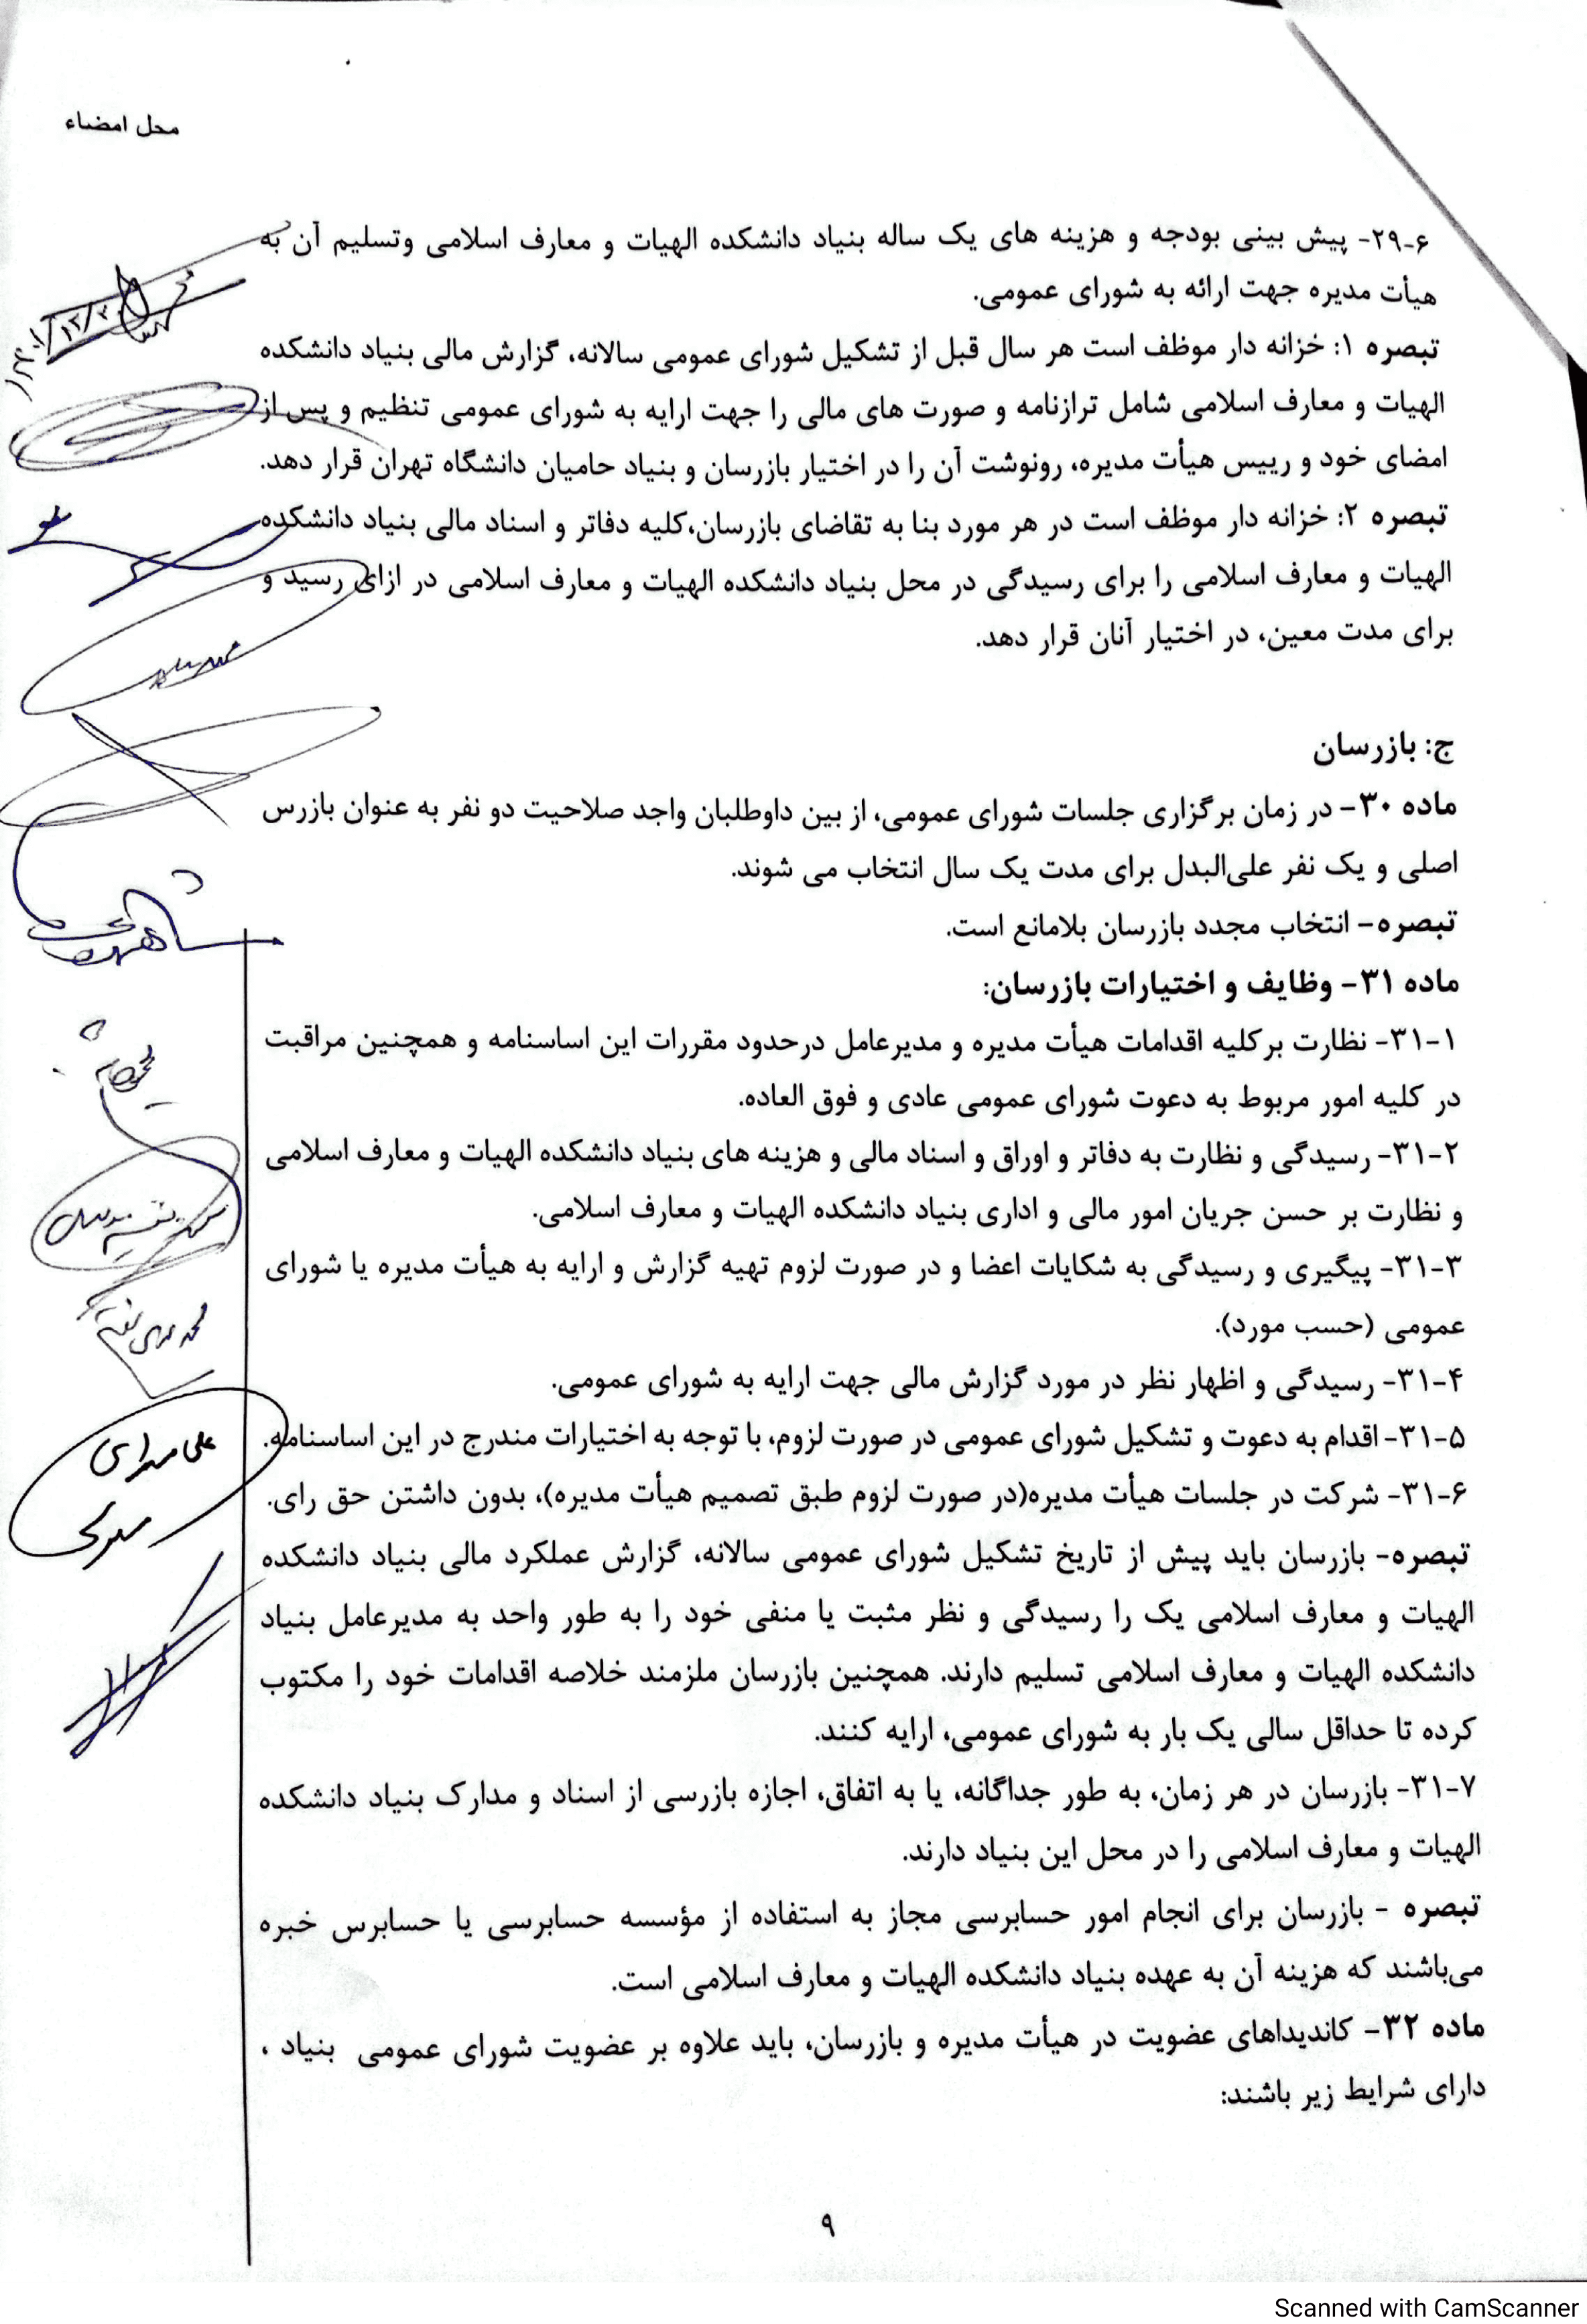 محل امضاء
۲۹-۶- پیش بینی بودجه و هزینه های یک ساله بنیاد دانشکده الهیات و معارف اسلامی وتسلیم آن به
هیأت مدیره جهت ارائه به شورای عمومی.
تبصره ۱: خزانه دار موظف است هر سال قبل از تشکیل شورای عمومی سالانه، گزارش مالی بنیاد دانشکده
الهیات و معارف اسلامی شامل ترازنامه و صورت های مالی را جهت ارایه به شورای عمومی تنظیم و پس از
امضای خود و رییس هیأت مدیره، رونوشت آن را در اختیار بازرسان و بنیاد حامیان دانشگاه تهران قرار دهد.
تبصره ۲: خزانه دار موظف است در هر مورد بنا به تقاضای بازرسان،کلیه دفاتر و اسناد مالی بنیاد دانشکده
الهیات و معارف اسلامی را برای رسیدگی در محل بنیاد دانشکده الهیات و معارف اسلامی در ازای رسید و
برای مدت معین، در اختیار آنان قرار دهد.
ج: بازرسان
ماده ۳۰- در زمان برگزاری جلسات شورای عمومی، از بین داوطلبان واجد صلاحیت دو نفر به عنوان بازرس
اصلی و یک نفر علی‌البدل برای مدت یک سال انتخاب می شوند.
تبصره- انتخاب مجدد بازرسان بلامانع است.
ماده ۳۱- وظایف و اختیارات بازرسان:
۳۱-۱- نظارت برکلیه اقدامات هیأت مدیره و مدیرعامل درحدود مقررات این اساسنامه و همچنین مراقبت
در کلیه امور مربوط به دعوت شورای عمومی عادی و فوق العاده.
۳۱-۲- رسیدگی و نظارت به دفاتر و اوراق و اسناد مالی و هزینه های بنیاد دانشکده الهیات و معارف اسلامی
و نظارت بر حسن جریان امور مالی و اداری بنیاد دانشکده الهیات و معارف اسلامی.
۳۱-۳- پیگیری و رسیدگی به شکایات اعضا و در صورت لزوم تهیه گزارش و ارایه به هیأت مدیره یا شورای
عمومی (حسب مورد).
۳۱-۴- رسیدگی و اظهار نظر در مورد گزارش مالی جهت ارایه به شورای عمومی.
۳۱-۵- اقدام به دعوت و تشکیل شورای عمومی در صورت لزوم، با توجه به اختیارات مندرج در این اساسنامه.
۳۱-۶- شرکت در جلسات هیأت مدیره(در صورت لزوم طبق تصمیم هیأت مدیره)، بدون داشتن حق رای.
تبصره- بازرسان باید پیش از تاریخ تشکیل شورای عمومی سالانه، گزارش عملکرد مالی بنیاد دانشکده
الهیات و معارف اسلامی یک را رسیدگی و نظر مثبت یا منفی خود را به طور واحد به مدیرعامل بنیاد
دانشکده الهیات و معارف اسلامی تسلیم دارند. همچنین بازرسان ملزمند خلاصه اقدامات خود را مکتوب
کرده تا حداقل سالی یک بار به شورای عمومی، ارایه کنند.
۳۱-۷- بازرسان در هر زمان، به طور جداگانه، یا به اتفاق، اجازه بازرسی از اسناد و مدارک بنیاد دانشکده
الهیات و معارف اسلامی را در محل این بنیاد دارند.
تبصره - بازرسان برای انجام امور حسابرسی مجاز به استفاده از مؤسسه حسابرسی یا حسابرس خبره
می‌باشند که هزینه آن به عهده بنیاد دانشکده الهیات و معارف اسلامی است.
ماده ۳۲- کاندیداهای عضویت در هیأت مدیره و بازرسان، باید علاوه بر عضویت شورای عمومی بنیاد ،
دارای شرایط زیر باشند:
۹
Scanned with CamScanner